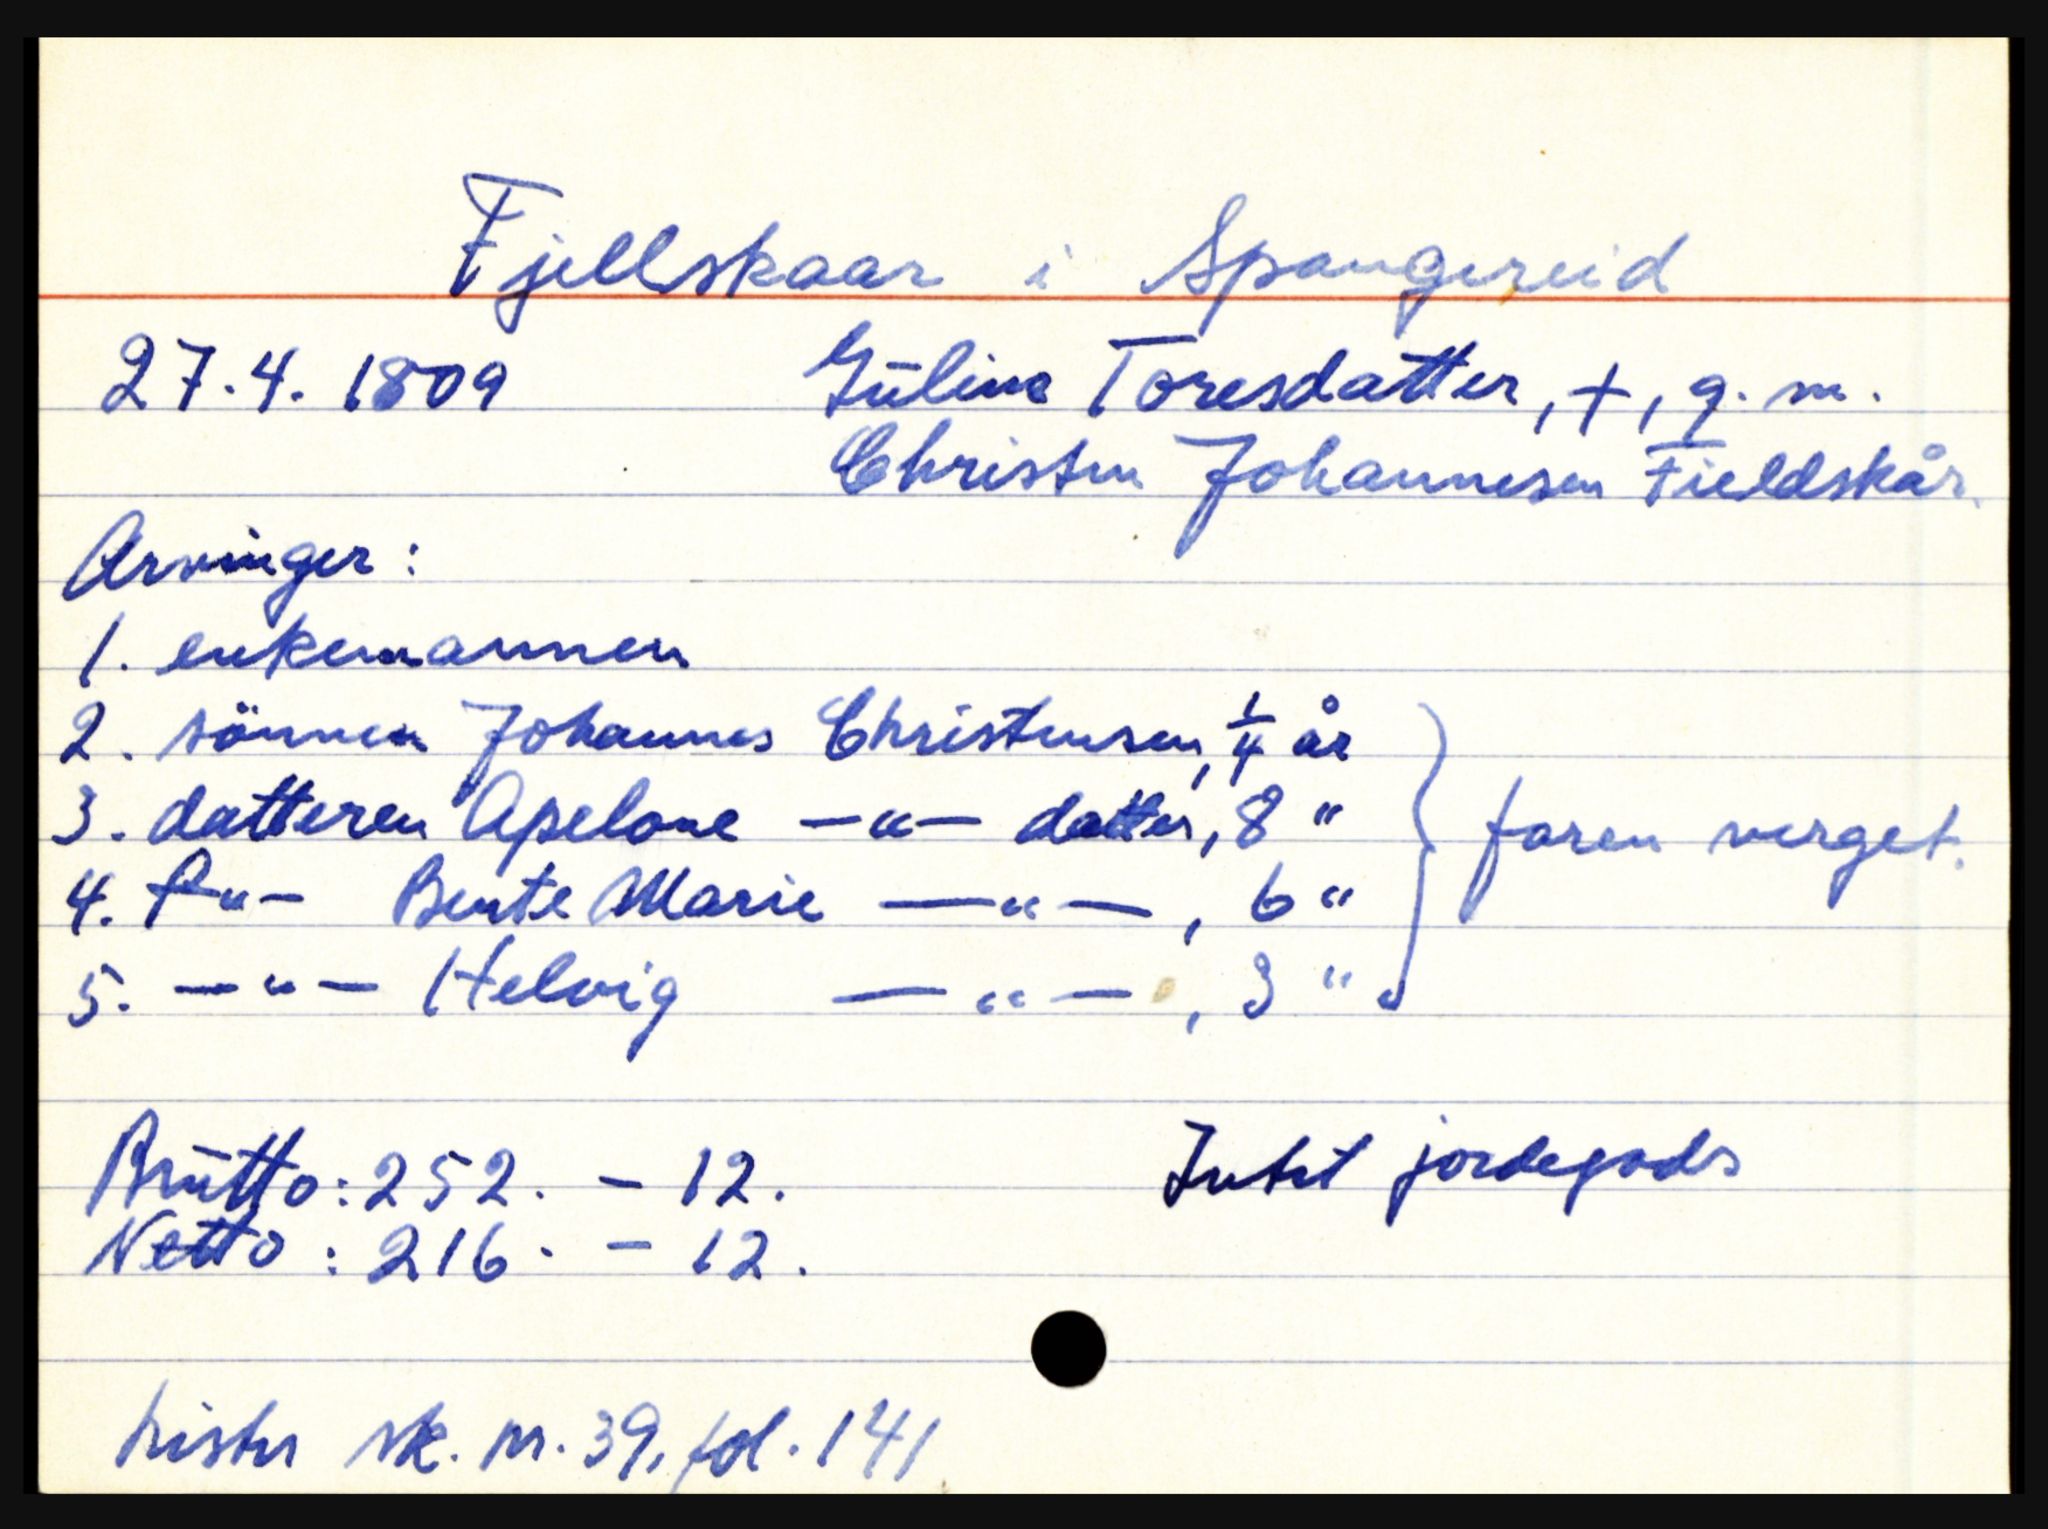 Fjellskaar i Spangereid
27.4. 1809 Güline Toresdatter, +, g. m.
Christen Johannesen Fieldskår.
Arvinger:
1. enkemannen
2. sönnen Johannes Christensen, 1/4 år
3. datteren Apelone —"— datter, 8 "
4. —"— Bente Marie —"—, 6 "
5. —"— Helvig —"—, 3 "
faren verget.
Brütto: 252. - 12. Intet jordegods
Netto: 216. - 12.
Lister sk. nr. 39, fol. 141